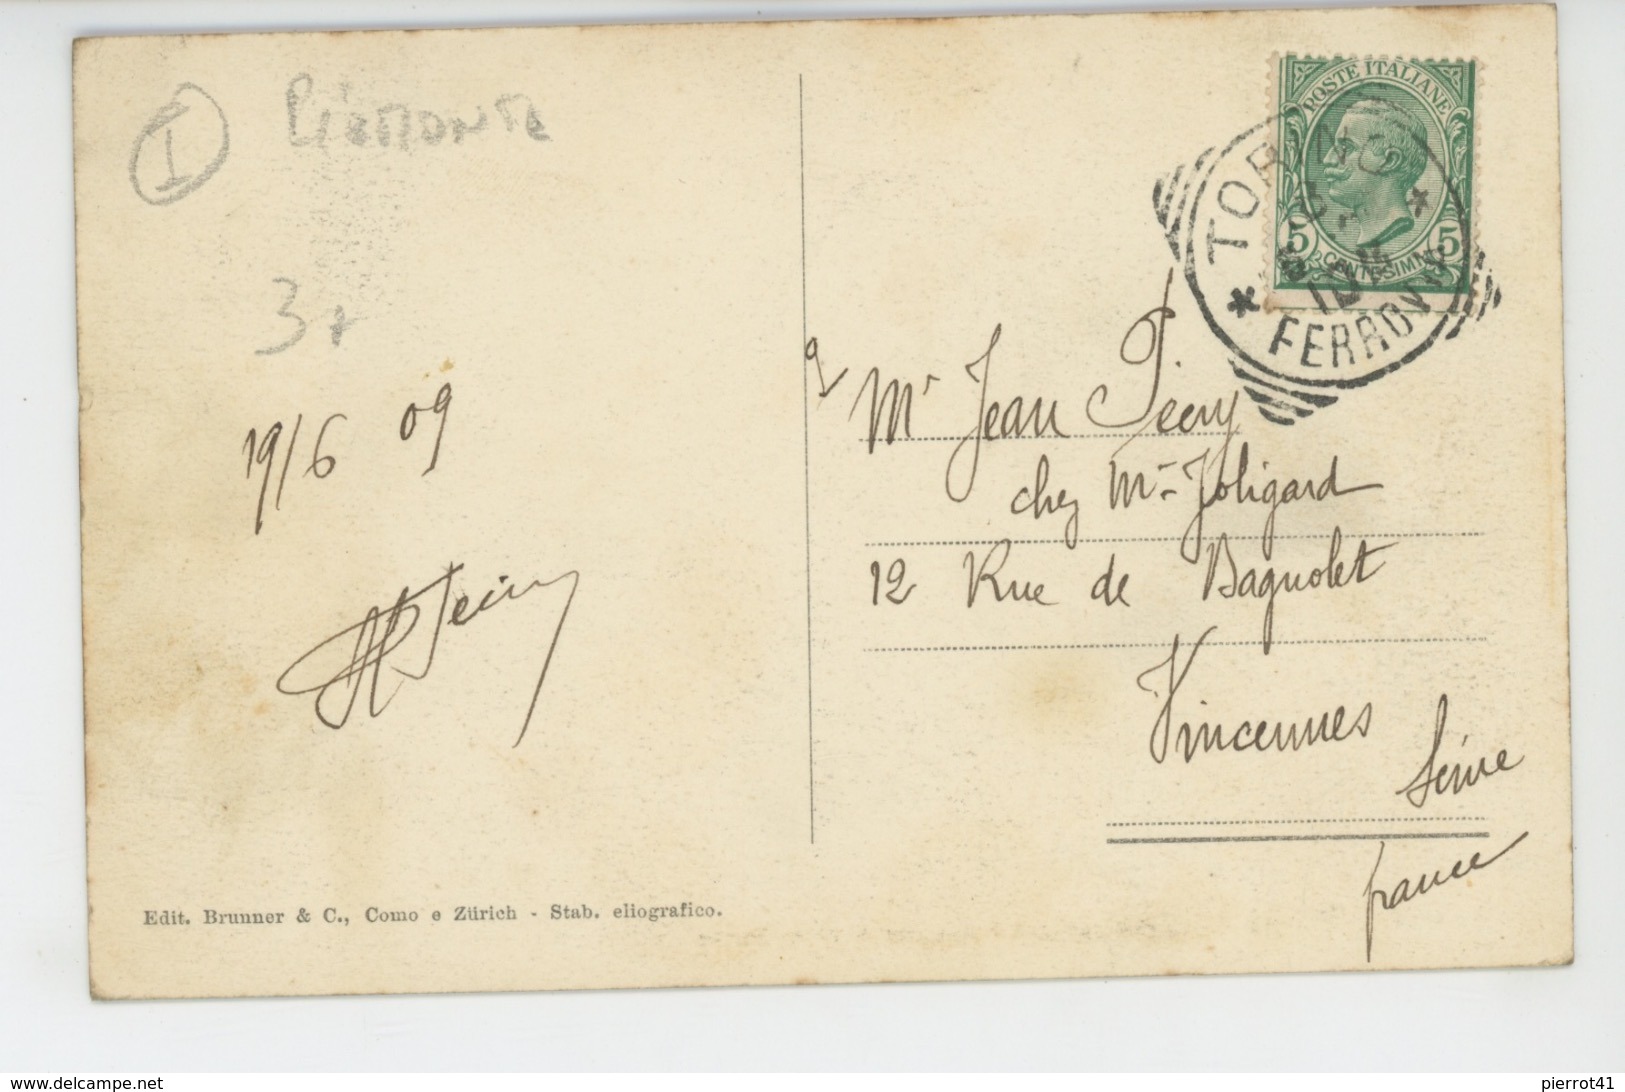 I
Piemonte
3
19/6 09
Edit. Brunner & C., Como e Zürich - Stab. eliografico.
POSTE ITALIANE
5 CENTESIMI 5
TORINO
FERROVIA
Mr Jean
chez Mr Joligard
12 Rue de Bagnolet
Vincennes
Seine
france
www.delcampe.net
pierrot41